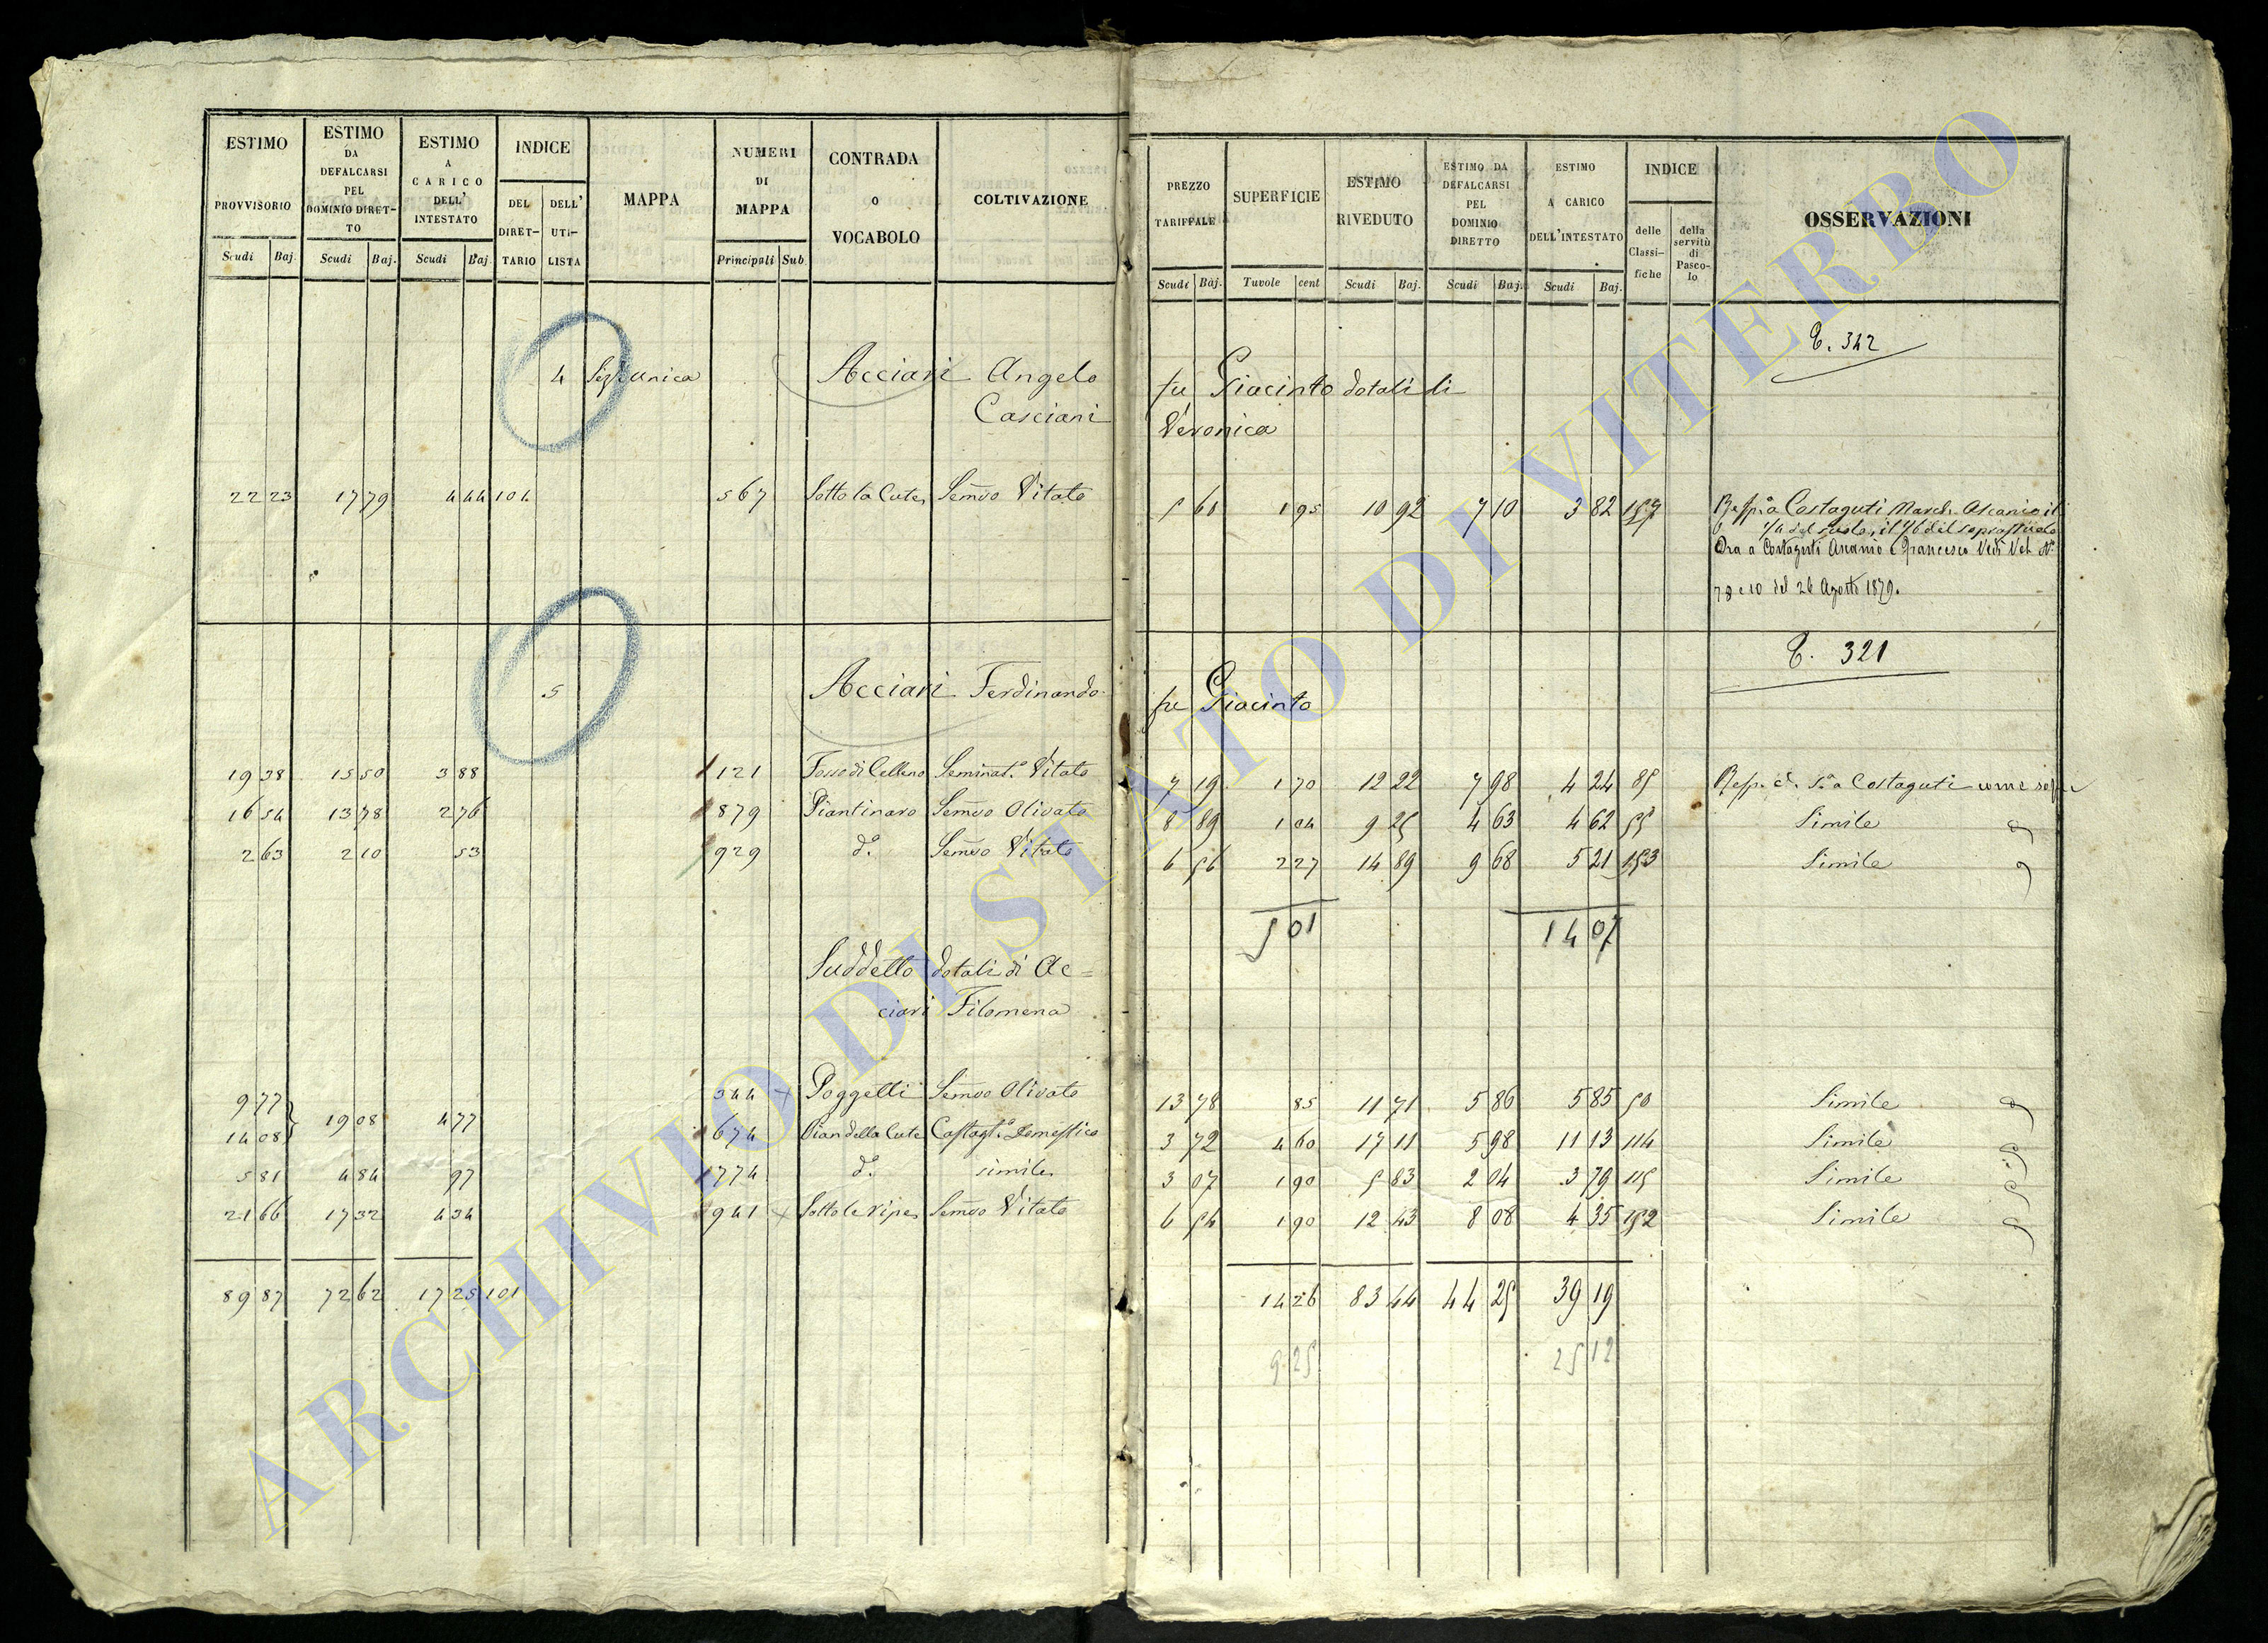 ESTIMO PROVVISORIO Scudi Baj.
ESTIMO DA DEFALCARSI PEL DOMINIO DIRET- TO Scudi Baj.
ESTIMO A CARICO DELL' INTESTATO Scudi Baj.
INDICE DEL DIRET- TARIO DELL' UTI- LISTA
MAPPA
NUMERI DI MAPPA Principali Sub
CONTRADA O VOCABOLO
COLTIVAZIONE
PREZZO TARIFFALE Scudi Baj.
SUPERFICIE Tavole cent
ESTIMO RIVEDUTO Scudi Baj.
ESTIMO DA DEFALCARSI PEL DOMINIO DIRETTO Scudi Baj.
ESTIMO A CARICO DELL'INTESTATO Scudi Baj.
INDICE delle Classi- fiche della servitù di Pasco- lo
OSSERVAZIONI
342
4 Sez. Unica Acciari Angelo fu Giacinto dotali di
Casciani Veronica
22 23 17 79 4 44 104 567 Sotto la Cute Semvo Vitato 5 60 1 95 10 92 7 10 3 82 157 Resp.a Costaguti March. Ascanio il
1/4 del suolo, il 1/6 del soprassuolo
Ora a Costaguti Ascanio e Francesco Vedi Vol. N.
78 e 10 del 26 Agosto 1879.
321
5 Acciari Ferdinando fu Giacinto
19 38 15 50 3 88 121 Fosso di Celleno Seminat.o Vitato 7 19 1 70 12 22 7 98 4 24 85 Resp. c. s.a a Costaguti come sopra
16 54 13 78 2 76 879 Piantinaro Semvo Olivato 8 89 1 04 9 25 4 63 4 62 55 Simile
2 63 2 10 53 929 d.o Semvo Vitato 6 56 2 27 14 89 9 68 5 21 153 Simile
5 01 14 07
Suddetto dotali di Ac=
ciari Filomena
9 77 344 Poggetti Semvo Olivato 13 78 85 11 71 5 86 5 85 50 Simile
14 08 19 08 4 77 674 Pian della Cute Castagt.o Domestico 3 72 4 60 17 11 5 98 11 13 114 Simile
5 81 4 84 97 1774 d.o simile 3 07 1 90 5 83 2 04 3 79 115 Simile
21 66 17 32 4 34 941 Sotto le Ripe Semvo Vitato 6 54 1 90 12 43 8 08 4 35 152 Simile
89 87 72 62 17 25 101 14 26 83 44 44 25 39 19
9 25 25 12
ARCHIVIO DI STATO DI VITERBO